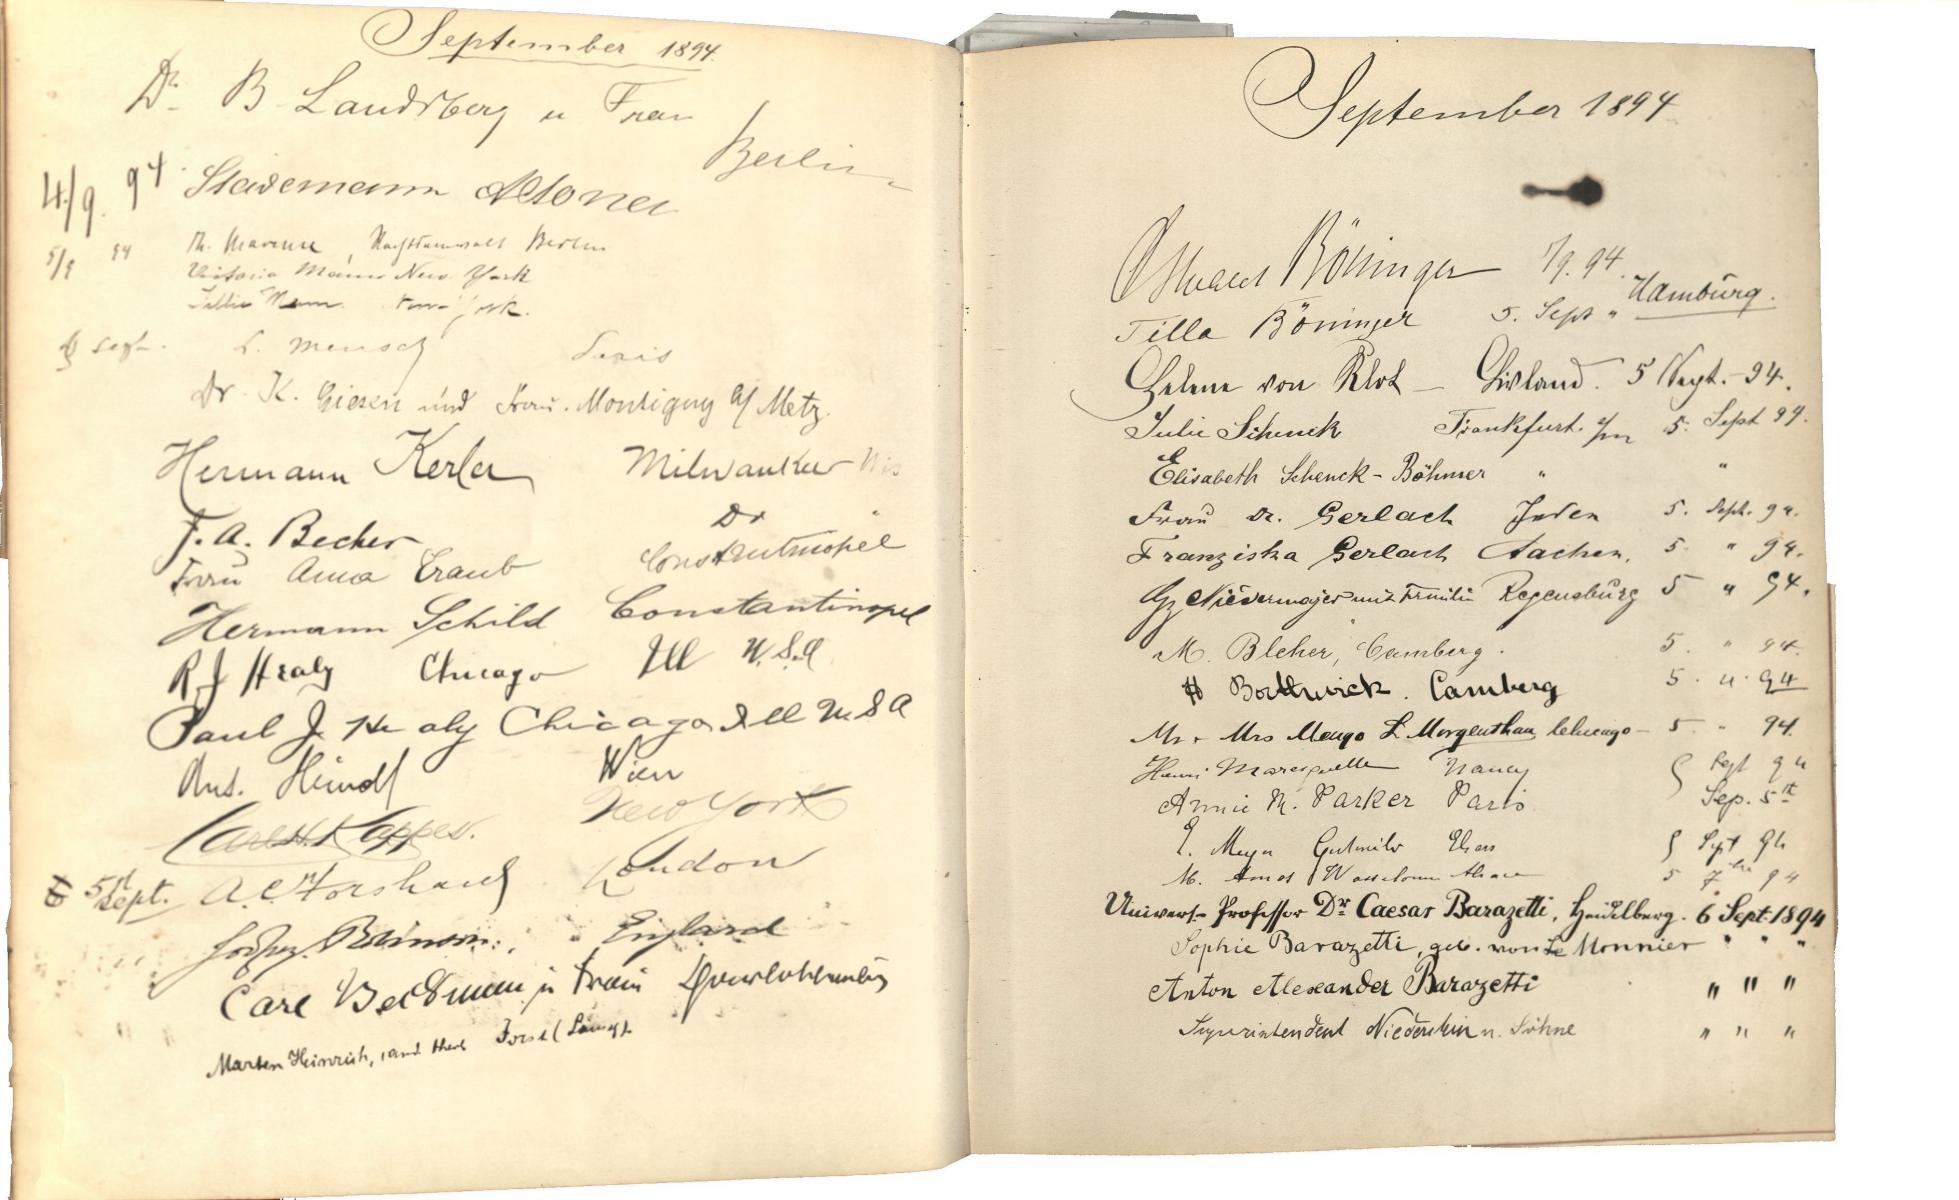 September 1894.
Dr. B Landsberg u Frau
Berlin
4/9. 94 Stademann Altona
5/9 94 Th. Rechtsanwalt Berlin
Victoria Mann New York
Tillie Mann. New-York.
Sept. L. Mensch Paris
Dr. K. Giesen und Frau. Montigny b/ Metz.
Hermann Kerler Milwaukee Wis
F. A. Becher Do
Frau Anna Traub Constantinopel
Hermann Schild Constantinopel
R J Healy Chicago Ill U.S.A
Paul J. Healy Chicago Ill U S A
Ant. Heindl Wien
Carl H. Kappes. New York
5th Sept. A. C. London
Robinson. " England
Carl Beckmann u Frau
Marten Heinrich, cand theol Forst (Lausitz)
September 1894
Oswald Böninger 5/9. 94.
Hamburg.
Tilla Böninger 5. Sept "
Helene von Klot — Livland. 5 Sept. - 94.
Julie Schenck Frankfurt a/m 5. Sept 94.
Elisabeth Schenck - Böhmer " "
Frau Dr. Gerlach 5. Sept. 94.
Franziska Gerlach Aachen. 5. " 94.
Gg Niedermayer mit Familie Regensburg 5 " 94.
M. Blcher, Camberg. 5. " 94.
H Borthwick. Camberg 5. " 94
Mr + Mrs Mengo L Morgenthau Chicago - 5 " 94.
Henri Nancy Sept 94
Annie M. Parker Paris Sep. 5th
E. Meyer Elsass Sept 94
M. Alsace 5 94
Univers.- Professor Dr. Caesar Barazetti, Heidelberg. 6 Sept. 1894
Sophie Barazetti, geb. von Le Monnier " " "
Anton Alexander Barazetti " " "
Superintendent Niederstein u. Söhne " " "